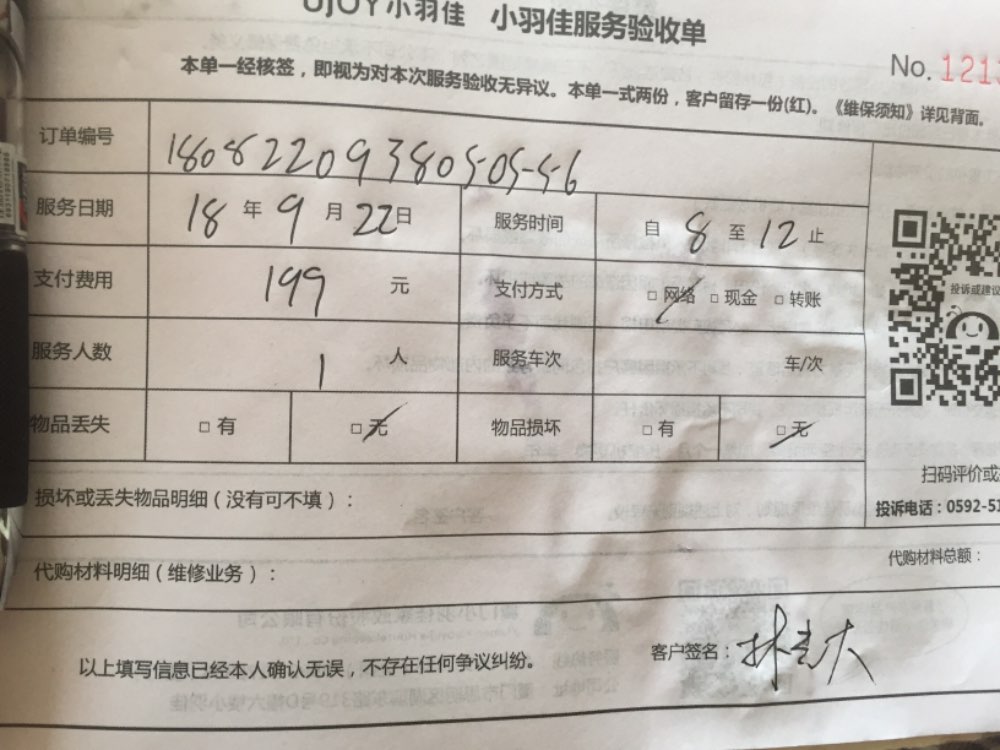 UJOY小羽佳 小羽佳服务验收单
No. 121
本单一经核签，即视为对本次服务验收无异议。本单一式两份，客户留存一份(红)。《维保须知》详见背面。
订单编号 180822093805055-6
服务日期 18 年 9 月 22 日 服务时间 自 8 至 12 止
支付费用 199 元 支付方式 □ 网络 □ 现金 □ 转账
服务人数 1 人 服务车次 车/次
物品丢失 □ 有 □ 无 物品损坏 □ 有 □ 无
投诉或建议
扫码评价或
投诉电话：0592-51
损坏或丢失物品明细（没有可不填）：
代购材料明细（维修业务）：
代购材料总额：
以上填写信息已经本人确认无误，不存在任何争议纠纷。
客户签名：